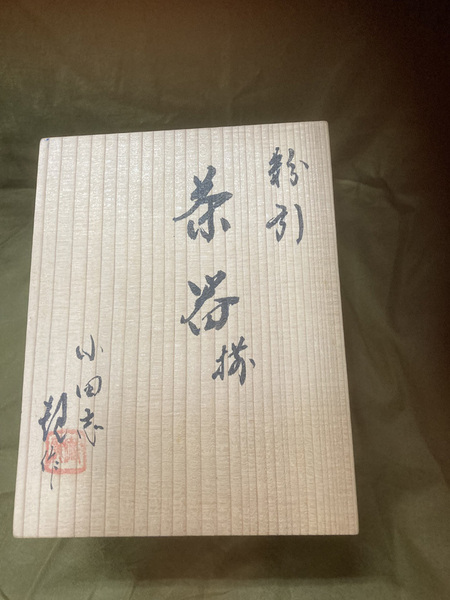 粉引
茶器揃
小田志
作